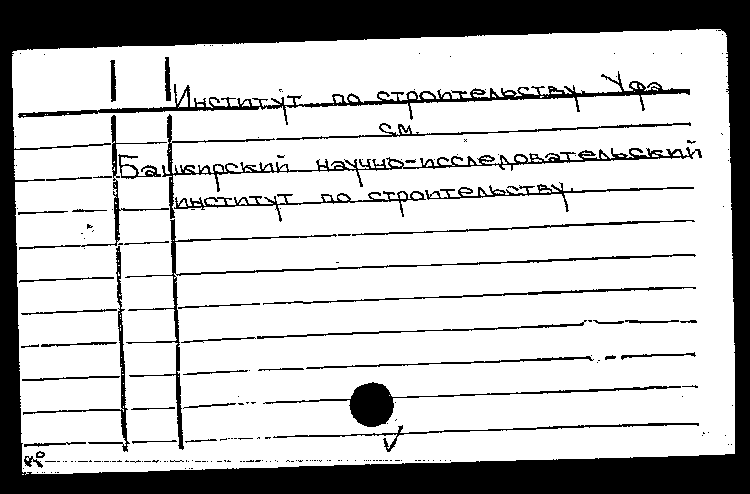 Институт по строительству. Уфа.
см.
Башкирский научно-исследовательский
институт по строительству.